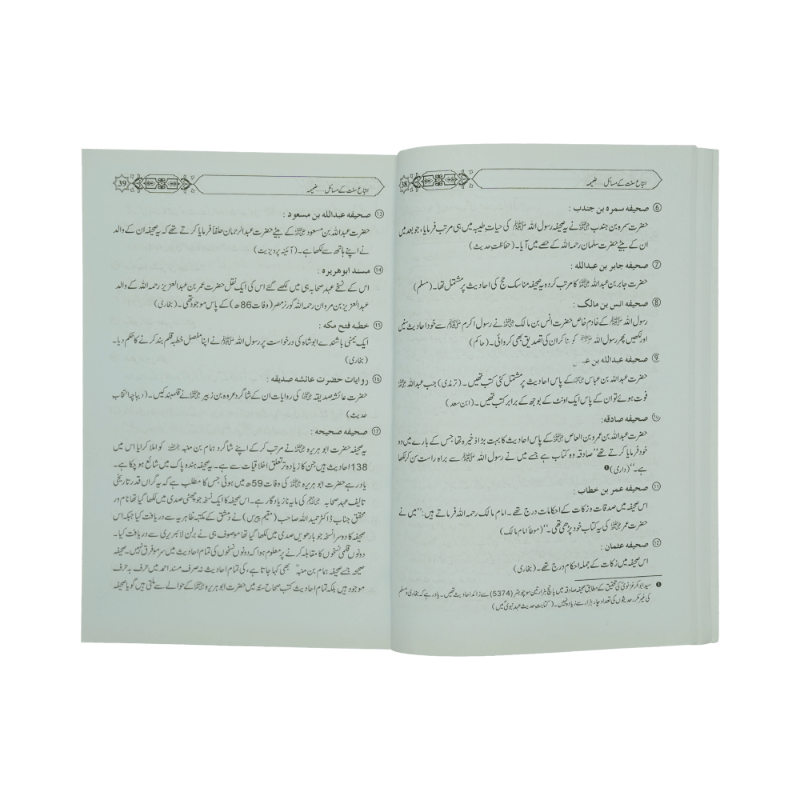 اتباع سنت کے مسائل.... ضمیمہ
38
⑥ صحیفہ سمرہ بن جندب :
حضرت سمرہ بن جندب ﷜ نے یہ صحیفہ رسول اللہ ﷺ کی حیات طیبہ میں ہی مرتب فرمایا، جو بعد میں
ان کے بیٹے حضرت سلمان رحمہ اللہ کے حصے میں آیا۔ (حفاظت حدیث)
⑦ صحیفہ جابر بن عبداللہ :
حضرت جابر بن عبداللہ ﷜ کا مرتب کردہ یہ صحیفہ مناسک حج کی احادیث پر مشتمل تھا۔ (مسلم)
⑧ صحیفہ انس بن مالک :
رسول اللہ ﷺ کے خادم خاص حضرت انس بن مالک ﷜ نے رسول اکرم ﷺ سے خود احادیث سنیں
اور لکھیں پھر رسول اللہ ﷺ کو سنا کر ان کی تصدیق بھی کروائی۔ (حاکم)
⑨ صحیفہ عبداللہ بن عباس
حضرت عبداللہ بن عباس ﷜ کے پاس احادیث پر مشتمل کئی کتب تھیں۔ (ترمذی) جب عبداللہ
فوت ہوئے تو ان کے پاس ایک اونٹ کے بوجھ کے برابر کتب تھیں۔ (ابن سعد)
⑩ صحیفہ صادقہ:
حضرت عبداللہ بن عمرو بن العاص ﷜ کے پاس احادیث کا بہت بڑا ذخیرہ تھا جس کے بارے میں وہ
خود فرمایا کرتے تھے "صادقہ وہ کتاب ہے جسے میں نے رسول اللہ ﷺ سے براہ راست سن کر لکھا
ہے۔" (دارمی)
⑪ صحیفہ عمر بن خطاب :
اس صحیفہ میں صدقات و زکات کے احکامات درج تھے۔ امام مالک رحمہ اللہ فرماتے ہیں: "میں نے
حضرت عمر ﷜ کی یہ کتاب خود پڑھی تھی۔" (موطا امام مالک)
⑫ صحیفہ عثمان :
اس صحیفہ میں زکات کے جملہ احکام درج تھے۔ (بخاری)
سید ابوبکر غزنوی کی تحقیق کے مطابق صحیفہ صادقہ میں پانچ ہزار تین سو چوہتر (5374) سے زائد احادیث تھیں۔ یاد رہے کہ بخاری و مسلم
کی غیر مکرر حدیثوں کی تعداد چار ہزار سے زیادہ نہیں۔ (کتابت حدیث عہد نبوی میں)
اتباع سنت کے مسائل.... ضمیمہ
39
⑬ صحیفہ عبداللہ بن مسعود :
حضرت عبداللہ بن مسعود ﷜ کے بیٹے حضرت عبدالرحمان حلفاً فرمایا کرتے تھے کہ یہ صحیفہ ان کے والد
نے اپنے ہاتھ سے لکھا ہے۔ (آئینہ پرویزیت)
⑭ مسند ابوہریرہ :
اس کے نسخے عہد صحابہ ہی میں لکھے گئے اس کی ایک نقل حضرت عمر بن عبدالعزیز رحمہ اللہ کے والد
عبدالعزیز بن مروان رحمہ اللہ گورنر مصر (وفات 86ھ) کے پاس موجود تھی۔ (بخاری)
⑮ خطبہ فتح مکہ :
ایک یمنی باشندے ابوشاہ کی درخواست پر رسول اللہ ﷺ نے اپنا مفصل خطبہ قلم بند کرنے کا حکم دیا۔
(بخاری)
⑯ روایات حضرت عائشہ صدیقہ :
حضرت عائشہ صدیقہ ﷞ کی روایات ان کے شاگرد عروہ بن زبیر ﷜ نے قلمبند کیں۔ (دیباچہ انتخاب
حدیث)
⑰ صحیفہ صحیحہ :
یہ صحیفہ حضرت ابو ہریرہ ﷜ نے مرتب کر کے اپنے شاگرد ہمام بن منبہ کو املا کرایا اس میں
138 احادیث ہیں جن کا زیادہ تر تعلق اخلاقیات سے ہے۔ یہ صحیفہ ہندو پاک میں شائع ہو چکا ہے۔
یاد رہے حضرت ابو ہریرہ ﷜ کی وفات 59ھ میں ہوئی جس کا مطلب ہے کہ یہ گراں قدر تاریخی
تالیف عہد صحابہ کی مایہ ناز یادگار ہے۔ اس صحیفہ کا ایک نسخہ جو چھٹی صدی میں لکھا گیا تھا نامور
محقق جناب ڈاکٹر حمید اللہ صاحب (مقیم پیرس) نے دمشق کے مکتبہ ظاہریہ سے دریافت کیا جبکہ اس
صحیفہ کا دوسرا نسخہ جو بارھویں صدی میں لکھا گیا تھا موصوف ہی نے برلن لائبریری سے دریافت کیا۔
دونوں قلمی نسخوں کا مقابلہ کرنے پر معلوم ہوا کہ دونوں نسخوں کی تمام احادیث میں سرمو فرق نہیں۔ صحیفہ
صحیحہ جسے صحیفہ ہمام بن منبہ بھی کہا جاتا ہے، کی تمام احادیث نہ صرف مسند احمد میں حرف بہ حرف
موجود ہیں بلکہ تمام احادیث کتب صحاح ستہ میں حضرت ابو ہریرہ ﷜ کے حوالے سے ملتی ہیں گویا صحیفہ